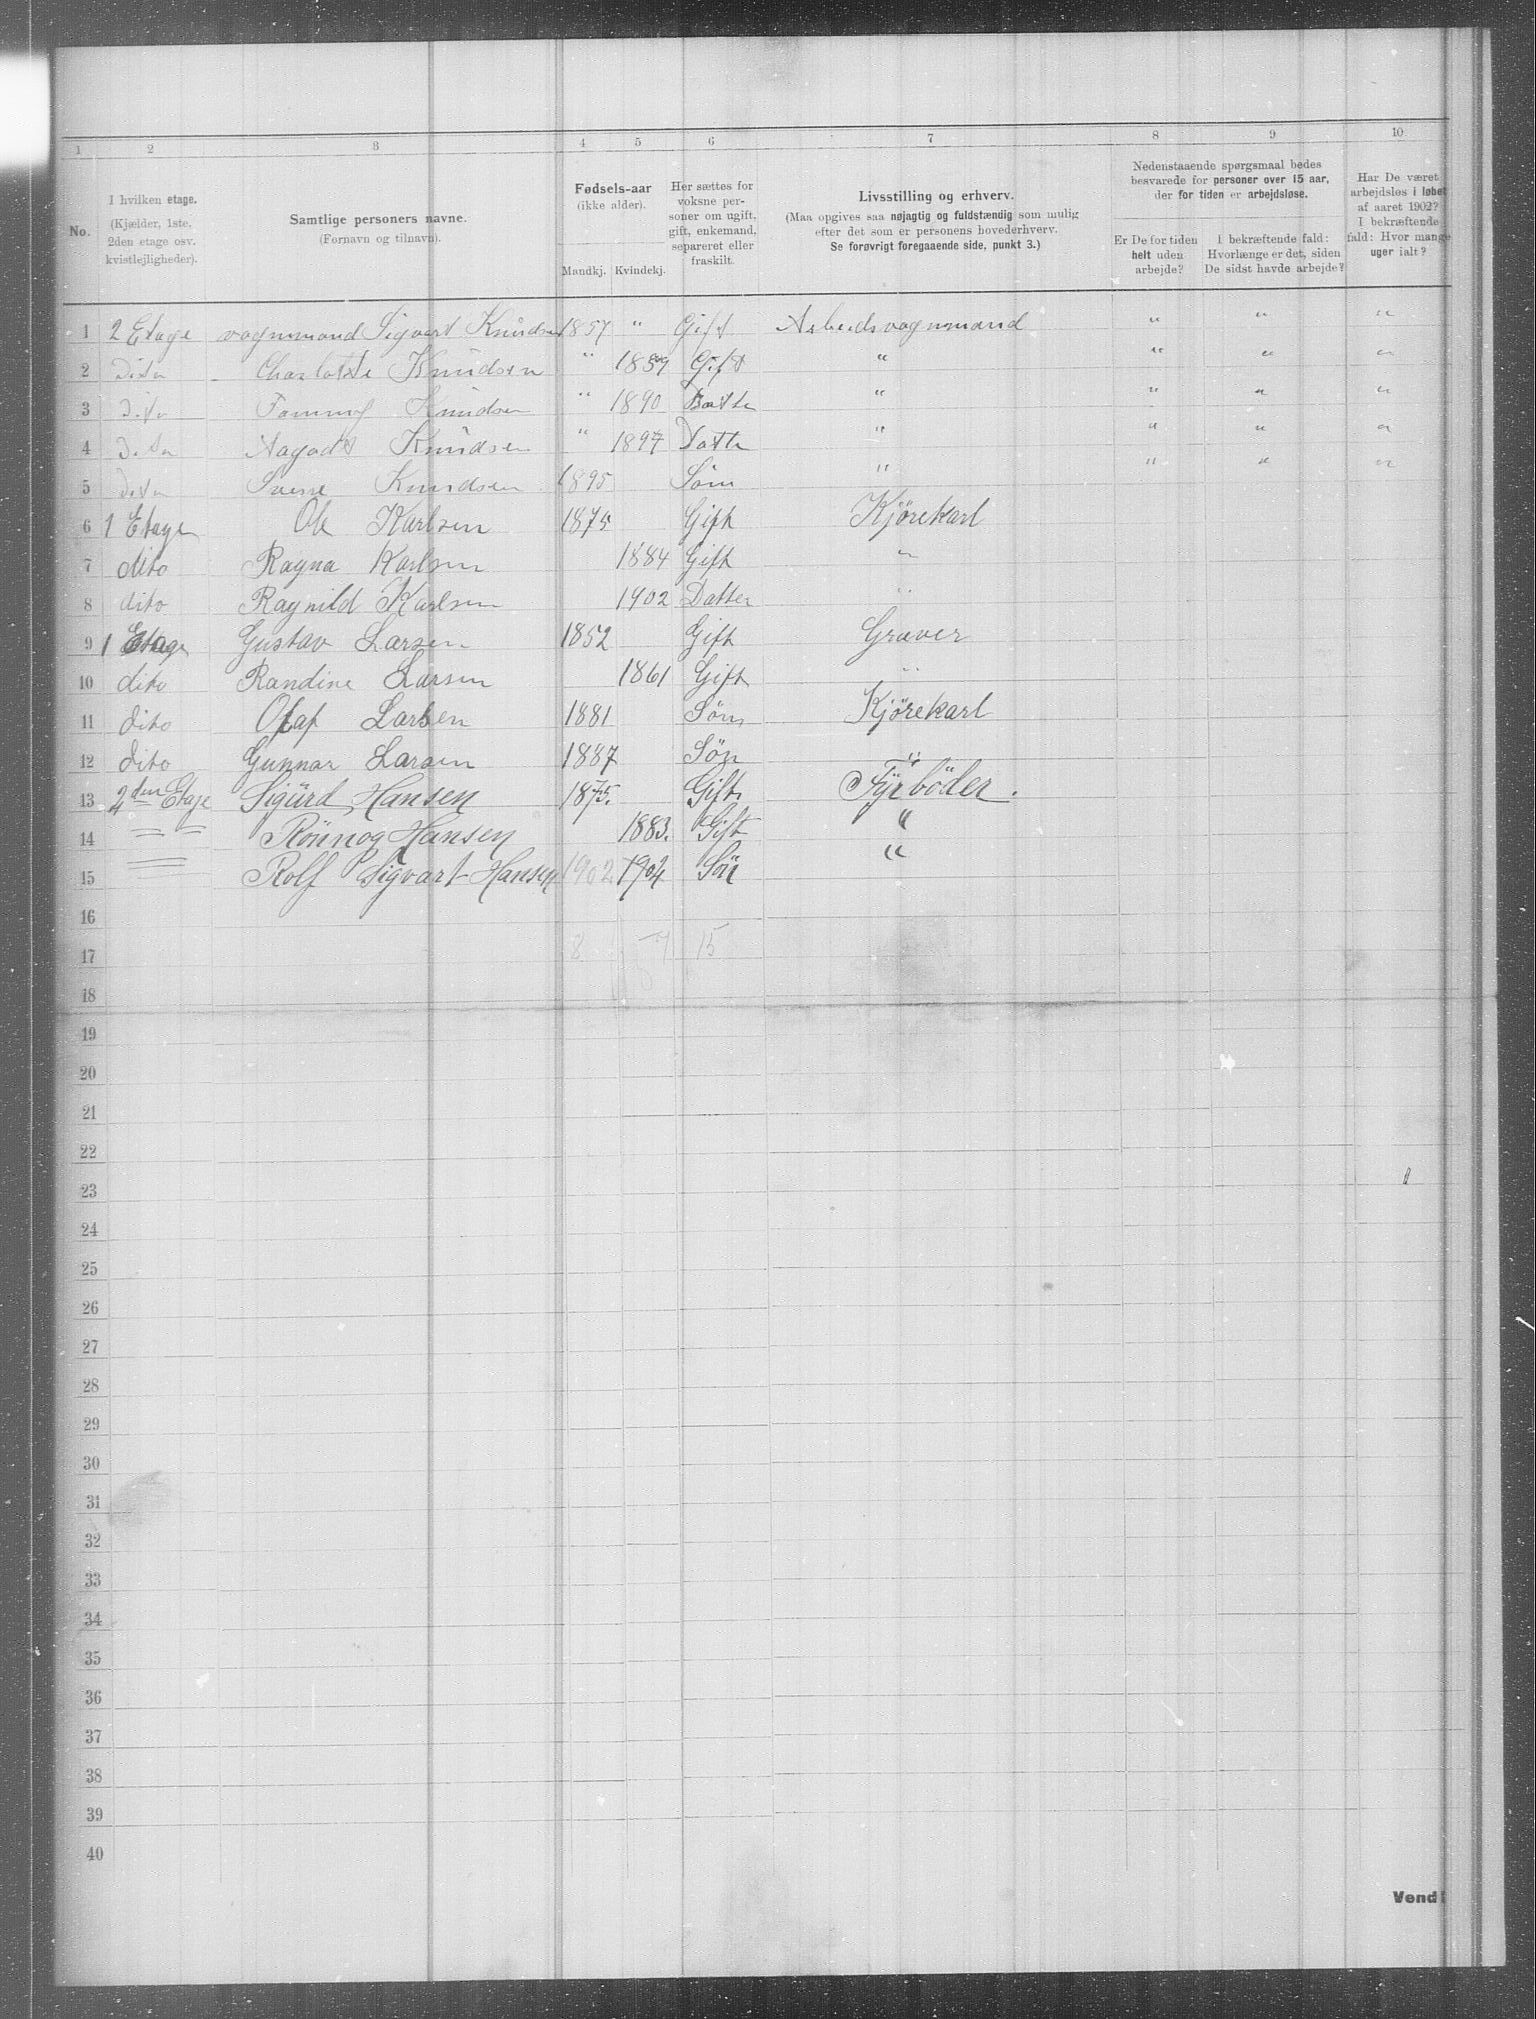 1 2 3 4 5 6 7 8 9 10
No.
I hvilken etage.
(Kjælder, 1ste,
2den etage osv.
kvistlejligheder).
Samtlige personers navne.
(Fornavn og tilnavn).
Fødsels-aar
(ikke alder).
Mandkj. Kvindekj.
Her sættes for
voksne per-
soner om ugift,
gift, enkemand,
separeret eller
fraskilt.
Livsstilling og erhverv.
(Maa opgives saa nøjagtig og fuldstændig som mulig
efter det som er personens hovederhverv.
Se forøvrigt foregaaende side, punkt 3.)
Nedenstaaende spørgsmaal bedes
besvarede for personer over 15 aar,
der for tiden er arbejdsløse.
Er De for tiden
helt uden
arbejde?
I bekræftende fald:
Hvorlænge er det, siden
De sidst havde arbejde?
Har De været
arbejdsløs i løbet
af aaret 1902?
I bekræftende
fald: Hvor mange
uger ialt?
1 2 Etage vognmand Sigvart Knudsen 1857 " Gift Arbeidsvognmand " " "
2 dito Charlotte Knudsen " 1859 Gift " " " "
3 dito Fanny Knudsen " 1890 Datte " " " "
4 dito Aagot Knudsen " 1897 Datte " " " "
5 dito Sverre Knudsen 1895 Søn " " " "
6 1 Etage Ole Karlsen 1875 Gift Kjörekarl
7 dito Ragna Karlsen 1884 Gift "
8 dito Ragnild Karlsen 1902 Datter "
9 1 Etage Gustav Larsen 1852 Gift Graver
10 dito Randine Larsen 1861 Gift "
11 dito Olaf Larsen 1881 Søn Kjörekarl
12 dito Gunnar Larsen 1887 Sön "
13 2den Etage Sigürd Hansen 1875. Gift. Fyrböder.
14 " " Rönnog Hansen 1883. Gift "
15 Rolf Sigvart Hansen 1902 1902 Sön "
16
17 8 7 15
18
19
20
21
22
23
24
25
26
27
28
29
30
31
32
33
34
35
36
37
38
39
40
Vend!